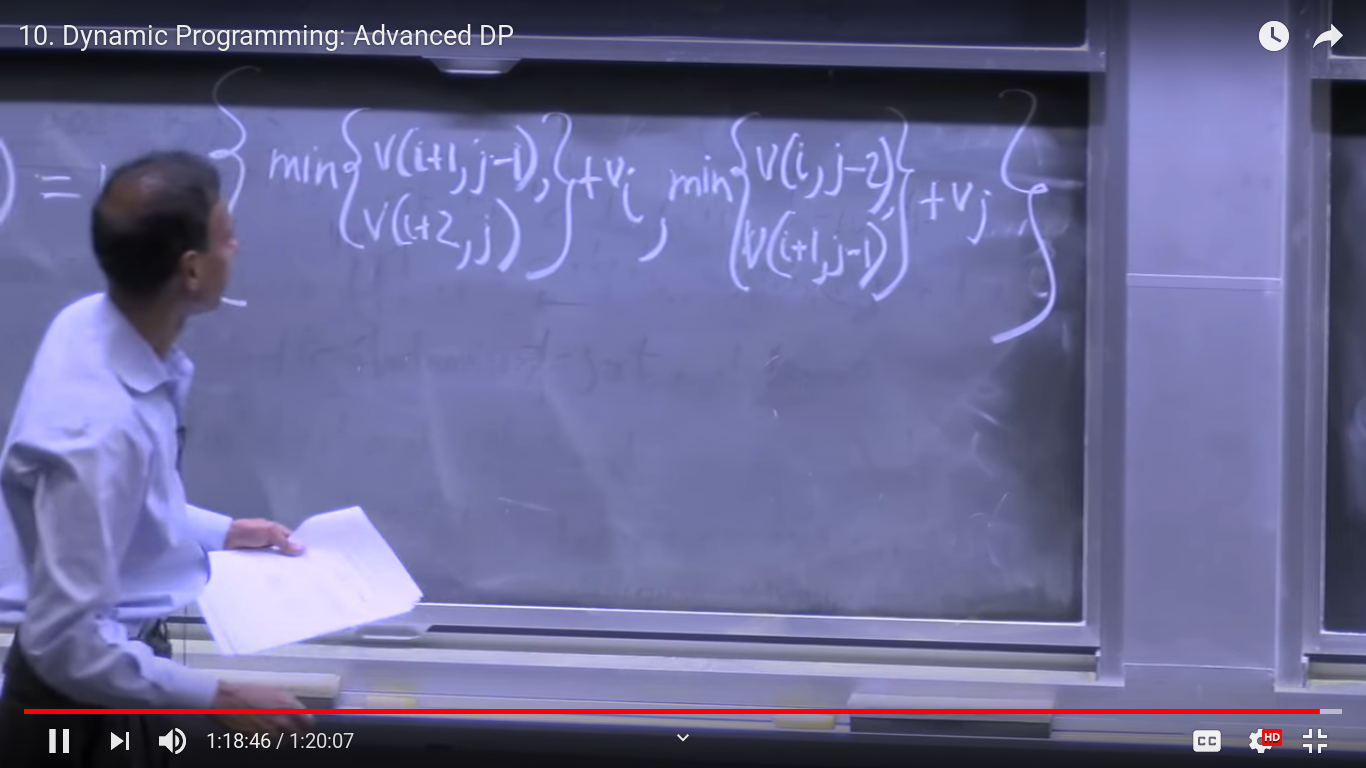 10. Dynamic Programming: Advanced DP
) = { min { V(i+1, j-1), V(i+2, j) } + v_i , min { V(i, j-2), V(i+1, j-1) } + v_j }
1:18:46 / 1:20:07
CC
HD